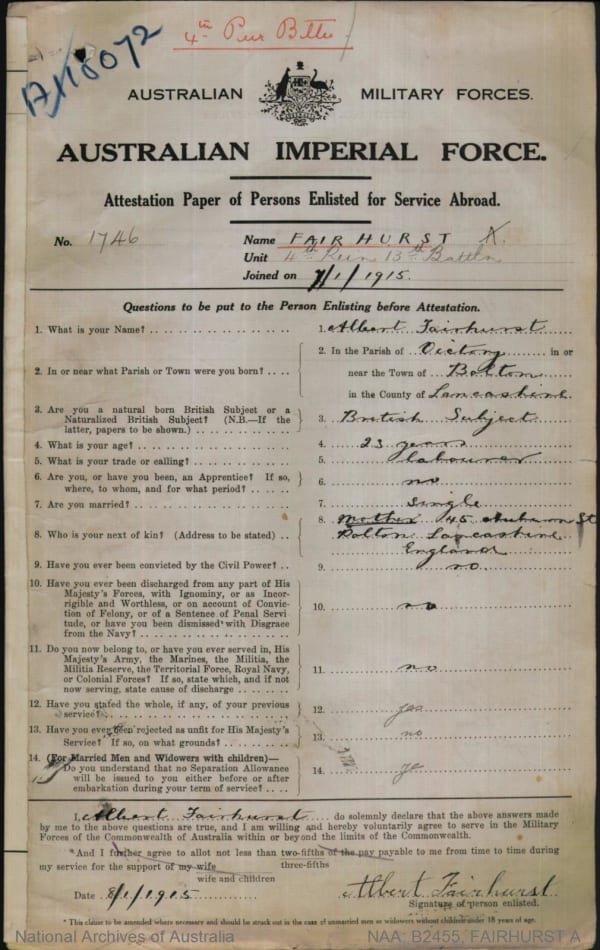 4th Reur Battn
A118072
AUSTRALIAN MILITARY FORCES.
AUSTRALIAN IMPERIAL FORCE.
Attestation Paper of Persons Enlisted for Service Abroad.
No. 1746
Name FAIRHURST A.
Unit 4th Rein 13th Battln
Joined on 7/1/1915.
Questions to be put to the Person Enlisting before Attestation.
1. What is your Name? 1. Albert Fairhurst
2. In the Parish of Victory in or
2. In or near what Parish or Town were you born? near the Town of Bolton
in the County of Lancashire
3. Are you a natural born British Subject or a
Naturalized British Subject? (N.B.—If the 3. British Subject
latter, papers to be shown.)
4. What is your age? 4. 23 years
5. What is your trade or calling? 5. labourer
6. Are you, or have you been, an Apprentice? If so,
where, to whom, and for what period? 6. no
7. Are you married? 7. Single
8. Mother 45 Auburn St
8. Who is your next of kin? (Address to be stated) Bolton Lancashire
England
9. Have you ever been convicted by the Civil Power? 9. no
10. Have you ever been discharged from any part of His
Majesty's Forces, with Ignominy, or as Incor-
rigible and Worthless, or on account of Convic-
tion of Felony, or of a Sentence of Penal Servi- 10. no
tude, or have you been dismissed with Disgrace
from the Navy?
11. Do you now belong to, or have you ever served in, His
Majesty's Army, the Marines, the Militia, the
Militia Reserve, the Territorial Force, Royal Navy, 11. no
or Colonial Forces? If so, state which, and if not
now serving, state cause of discharge
12. Have you stated the whole, if any, of your previous
service? 12. yes
13. Have you ever been rejected as unfit for His Majesty's
Service? If so, on what grounds? 13. no
14. (For Married Men and Widowers with children)—
Do you understand that no Separation Allowance
will be issued to you either before or after 14. ye
embarkation during your term of service?
I, Albert Fairhurst do solemnly declare that the above answers made
by me to the above questions are true, and I am willing and hereby voluntarily agree to serve in the Military
Forces of the Commonwealth of Australia within or beyond the limits of the Commonwealth.
*And I further agree to allot not less than two-fifths of the pay payable to me from time to time during
three-fifths
my service for the support of my wife
wife and children
Date 8/1/1915 Albert Fairhurst
Signature of person enlisted.
* This clause to be amended where necessary and should be struck out in the case of unmarried men or widowers without children under 18 years of age.
National Archives of Australia NAA: B2455, FAIRHURST A